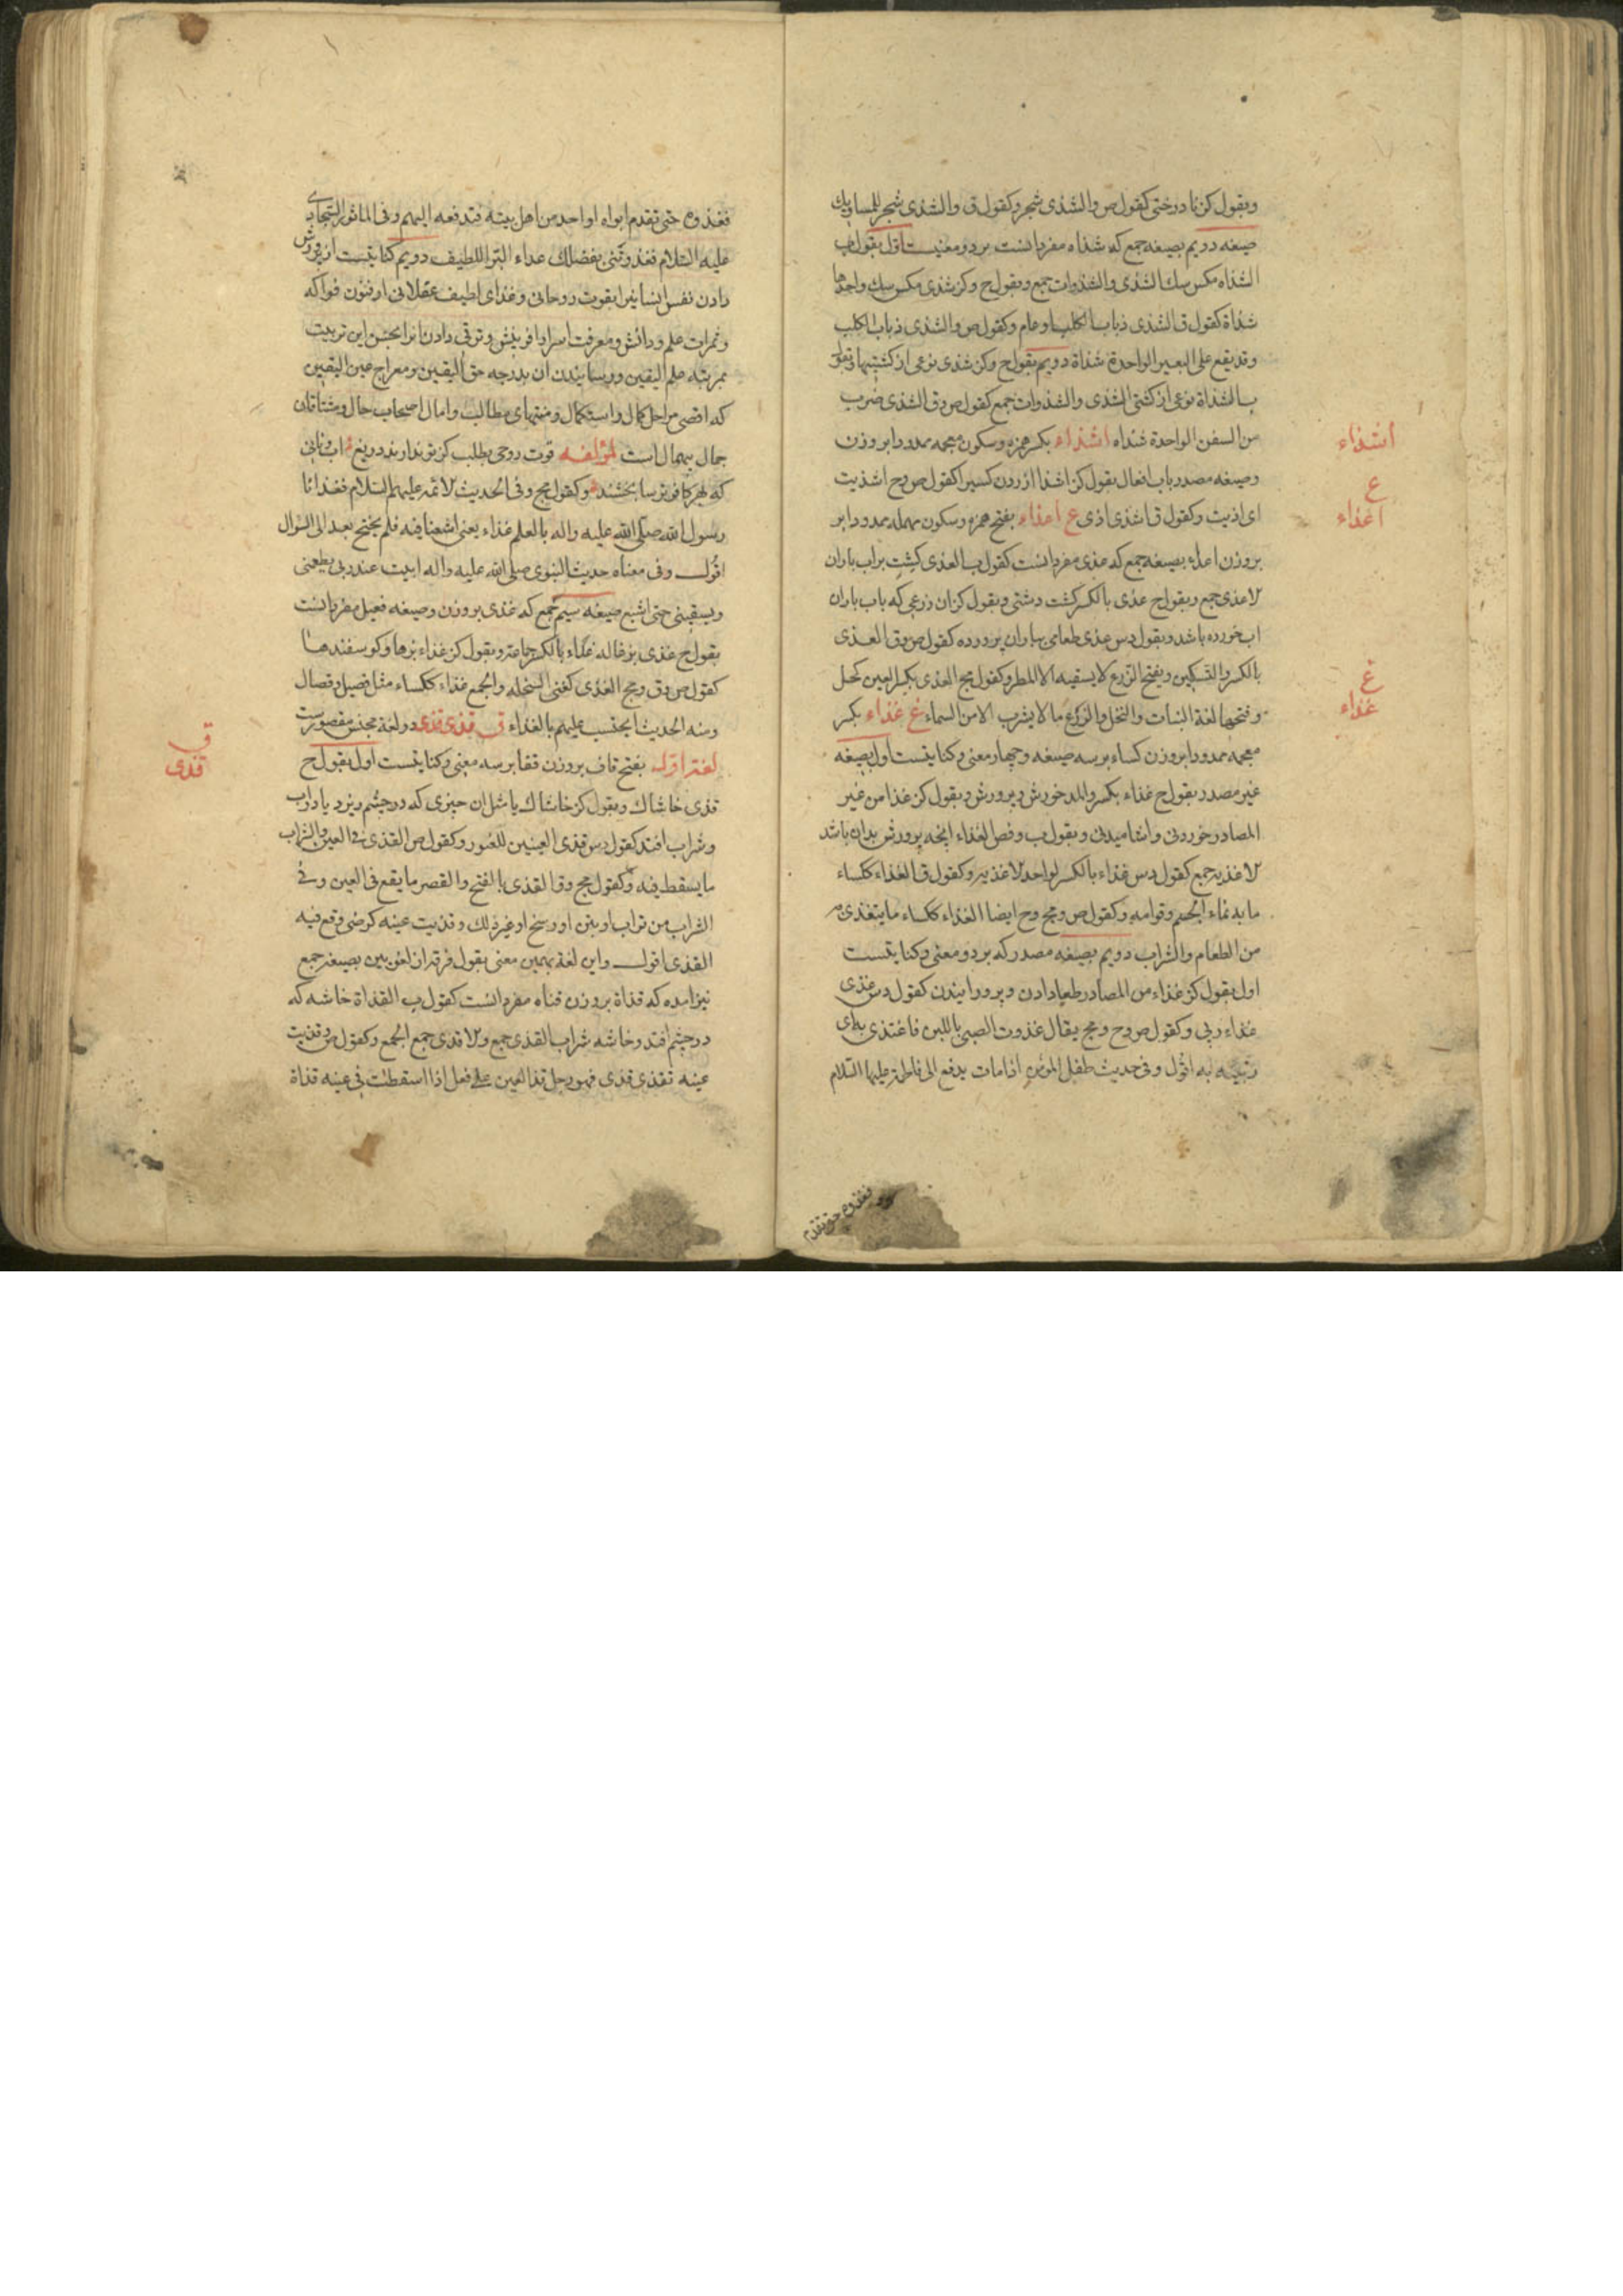 وبقول كنز نا درختى كقول ص والشذى شجر وكقول ق والشذى شجر للمساويك
صيغه دويم بصيغه جمع كه شذاه مفرد انست بر دو معنيست اول بقول ب
الشذاه مكس سك الشذى والشذوات جمع وبقول ح وكنز شذى مكس سك واحدها
شذاة كقول ق الشذى ذباب الكلب او عام وكقول ص والشذى ذباب الكلب
وقد يقع على البعير الواحدة شذاة دويم بقول ح وكنز شذى نوعى از كشتيها
ب الشذاة نوعى از كشتى الشذى والشذوات جمع كقول ص وق الشذى ضرب
من السفن الواحدة شذاه اشذاء بكسر همزه وسكون معجمه ممدودا بر وزن
وصيغه مصدر باب افعال بقول كنز اشذا ازردن كسيرا كقول ص وح اشذيت
اى اذيت وكقول ق اشذى اذى ع اعذاء بفتح همزه وسكون مهمله ممدودا بر
بر وزن اعلاء بصيغه جمع كه عذى مفرد انست كقول ب العذى كشت بر اب باران
لاعذى جمع وبقول ح عذى بالكسر كشت دشتى وبقول كنز ان زرعى كه باب باران
اب خورده باشد وبقول دس عذى طعامى بباران پرورده كقول ص وق العذى
بالكسر والتسكين ويفتح الزرع لا يسقيه الا المطر وكقول مج العذى بكسر العين كحل
وفتحها لغة النبات والنخل والزرع ما لا يشرب الا من السماء غ غذاء بكسر
معجمه ممدودا بر وزن كساء بر سه صيغه وچهار معنى وكنايتست اول بصيغه
غير مصدر بقول ح غذاء بكسر والمد خورش وپرورش وبقول كنز غذا من غير
المصادر خوردنى واشاميدنى وبقول ب وفص الغذاء انچه پرورش بدان باشد
لاغذيه جمع كقول دس غذاء بالكسر لواحد لاغذيه وكقول ق الغذاء ككساء
ما به نماء الجسم وقوامه وكقول ص ومج وح ايضا الغذاء ككساء ما يتغذى
من الطعام والشراب دويم بصيغه مصدر كه بر دو معنى وكنايتست
اول بقول كنز غذاء من المصادر طعام دادن وپرورانيدن كقول دس غذى
غذاء ربى وكقول ص وح ومج يقال غذوت الصبى باللبن فاغتذى به اى
ربيته به اقول وفى حديث طفل المؤمن اذا مات يدفع الى فاطمة عليها السلام
فغذوه حتى تقدم
اشذاء
ع
اعذاء
غ
غذاء
فغذوه حتى تقدم ابواه او احد من اهل بيته فتدفعه اليهم وفى الماثور السجادى
عليه السلام فغذوتنى بفضلك غذاء البر اللطيف دويم كنايتست از پرورش
دادن نفس انسانيرا بقوت روحانى وغذاى لطيف عقلانى از فنون فواكه
وثمرات علم ودانش ومعرفت اسرار افرينش وترقى دادن انرا بحسن اين تربيت
بمرتبه علم اليقين ورسانيدن ان بدرجه حق اليقين ومعراج عين اليقين
كه اقصى مراحل كمال واستكمال ومنتهاى مطالب وامال اصحاب حال ومشتاقان
جمال بيمثال است لمؤلفه قوت روحى بطلب كز تو ندارند دريغ
كه بهر كافر وترسا بخشند وكقول مج وفى الحديث لائمة عليهم السلام فغذانا
رسول الله صلى الله عليه واله بالعلم غذاء يعنى اشبعنا فيه فلم يحتج بعد الى السؤال
اقول وفى معناه حديث النبوى صلى الله عليه واله ابيت عند ربى يطعمنى
ويسقينى حتى اشبع صيغه سيم جمع كه غذى بر وزن وصيغه فعيل مفرد انست
بقول ح غذى بزغاله غذاء بالكسر جماعة وبقول كنز غذاء بزها وكوسفندها
كقول ص وق ومج الغذى كغنى السخله والجمع غذاء ككساء مثل فصيل وفصال
ومنه الحديث ايحتسب عليهم بالغذاء ق قذى قذى دو لغة مجنس مقصورست
لغة اول بفتح قاف بر وزن قفا بر سه معنى وكنايتست اول بقول ح
قذى خاشاك وبقول كنز خاشاك يا مثل ان چيزى كه در چشم ريزد يا در اب
وشراب افتد كقول دس قذى العينين للعور وكقول ص القذى فى العين والشراب
ما يسقط فيه وكقول مج وق القذى بالفتح والقصر ما يقع فى العين وفى
الشراب من تراب او تبن او وسخ او غير ذلك وقذيت عينه كرضى وقع فيه
القذى اقول واين لغة بهمين معنى بقول فرقة از لغويين بصيغه جمع
نيز امده كه قذاة بر وزن قناه مفرد انست كقول ب القذاة خاشه كه
در چشم افتد وخاشه شراب القذى جمع ولاقذى جمع الجمع وكقول ص وقذيت
عينه تقذى قذى فهو رجل قذ العين على فعل اذا اسقطت فى عينه قذاة
ق
قذى